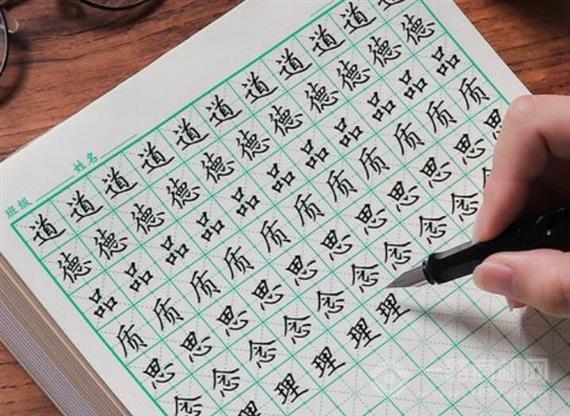 班级 姓名
道道道道道道道道道道
德德德德德德德德德德德
品品品品品品品品品品品
质质质质质质质质质质质
思思思思思思思思思思思
念念念念念念念念念
理理理理理